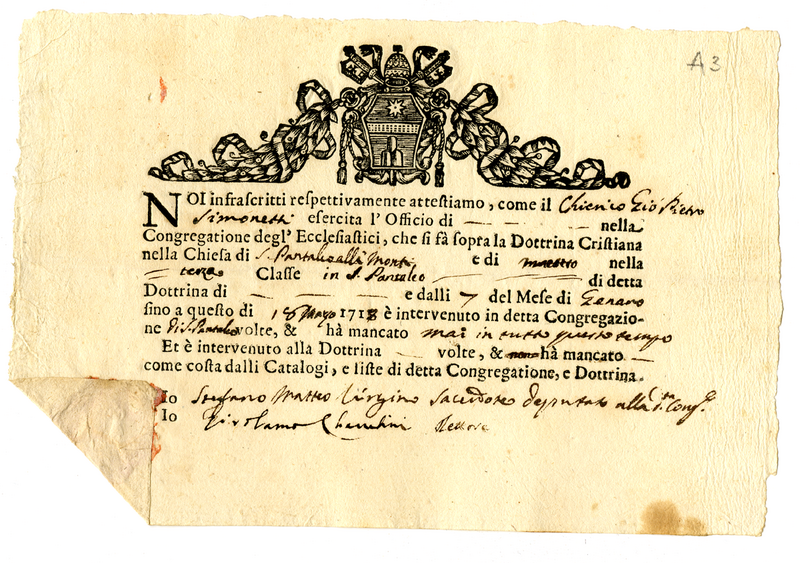 A3
NOI infrascritti respettivamente attestiamo, come il Chierico Gio Pietro
Simonetti esercita l' Officio di — — — nella
Congregatione degl' Ecclesiastici, che si fà sopra la Dottrina Cristiana
nella Chiesa di S. Pantaleo alli Monti e di maestro nella
terza Classe in S. Pantaleo — di detta
Dottrina di — — — e dalli 7 del Mese di Genaro
sino a questo di 18 Maggio 1718 è intervenuto in detta Congregazio-
ne di S. Pantaleo volte, & hà mancato mai in tutto questo tempo
Et è intervenuto alla Dottrina — volte, & hà mancato —
come costa dalli Catalogi, e liste di detta Congregatione, e Dottrina.
Io Stefano Matteo Sacerdote deputato alla d.ta Cong.e
Io Girolamo Rettore